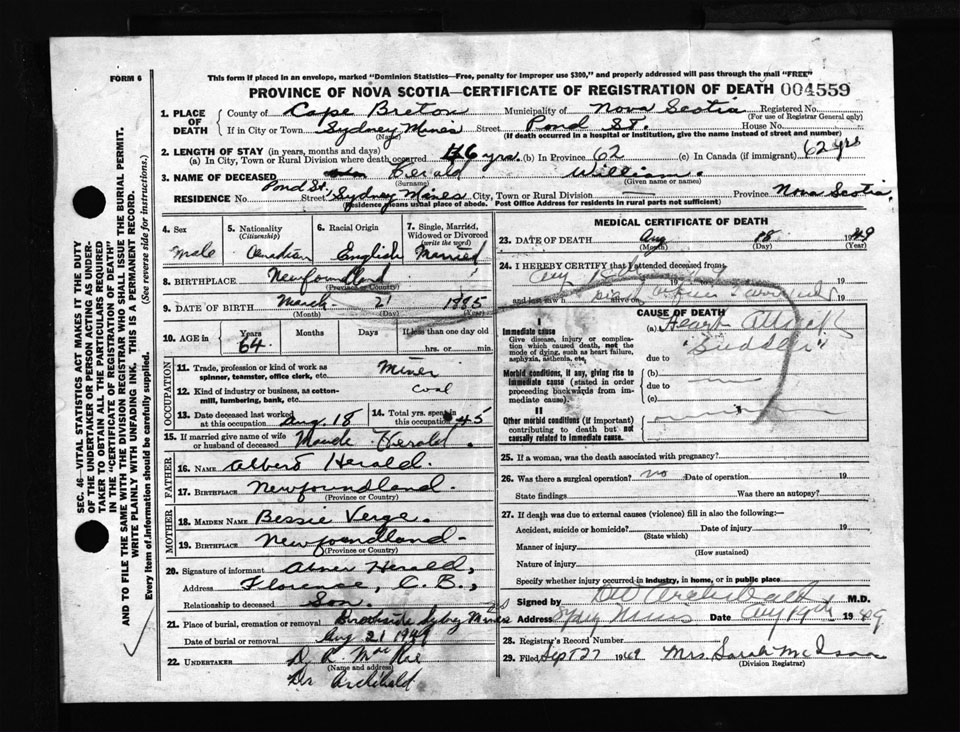 FORM 6
This form if placed in an envelope, marked "Dominion Statistics—Free, penalty for improper use $300," and properly addressed will pass through the mail "FREE"
PROVINCE OF NOVA SCOTIA—CERTIFICATE OF REGISTRATION OF DEATH 004559
1. PLACE OF DEATH County of Cape Breton Municipality of Nova Scotia Registered No.
(For use of Registrar General only)
If in City or Town Sydney Mines Street Pond St. House No.
(Name) (If death occurred in a hospital or institution, give the name instead of street and number)
2. LENGTH OF STAY (in years, months and days)
(a) In City, Town or Rural Division where death occurred 46 yrs. (b) In Province 62 (c) In Canada (if immigrant) 62 yrs
3. NAME OF DECEASED Herald William.
(Surname) (Given name or names)
RESIDENCE No. Pond St. Street Sydney Mines City, Town or Rural Division Province Nova Scotia
Residence means usual place of abode. Post Office Address for residents in rural parts not sufficient)
4. Sex Male
5. Nationality (Citizenship) Canadian
6. Racial Origin English
7. Single, Married, Widowed or Divorced (write the word) Married
8. BIRTHPLACE Newfoundland
(Province or Country)
9. DATE OF BIRTH March 21 1885
(Month) (Day) (Year)
10. AGE in Years 64 Months Days If less than one day old hrs. or min.
OCCUPATION
11. Trade, profession or kind of work as spinner, teamster, office clerk, etc. Miner
12. Kind of industry or business, as cotton-mill, lumbering, bank, etc. Coal
13. Date deceased last worked at this occupation Aug. 18
14. Total yrs. spent in this occupation 45
15. If married give name of wife or husband of deceased Maude Herald.
FATHER
16. NAME Albert Herald.
17. BIRTHPLACE Newfoundland.
(Province or Country)
MOTHER
18. MAIDEN NAME Bessie Verge.
19. BIRTHPLACE Newfoundland.
(Province or Country)
20. Signature of informant Abner Herald,
Address Florence, C.B.,
Relationship to deceased Son.
21. Place of burial, cremation or removal Brookside Sydney Mines NS
Date of burial or removal Aug 21 1949
22. UNDERTAKER D. R. MacRae
(Name and address)
Dr Archibald
MEDICAL CERTIFICATE OF DEATH
23. DATE OF DEATH Aug 18 1949
(Month) (Day) (Year)
24. I HEREBY CERTIFY that I attended deceased from
19
and last saw h alive on 19
CAUSE OF DEATH
I
Immediate cause
Give disease, injury or complication which caused death, not the mode of dying, such as heart failure, asphyxia, asthenia, etc.
(a) Heart Attack
"Sudden"
due to
Morbid conditions, if any, giving rise to immediate cause (stated in order proceeding backwards from immediate cause).
(b)
due to
(c)
II
Other morbid conditions (if important) contributing to death but not causally related to immediate cause.
25. If a woman, was the death associated with pregnancy?
26. Was there a surgical operation? no Date of operation 19
State findings Was there an autopsy?
27. If death was due to external causes (violence) fill in also the following:—
Accident, suicide or homicide? Date of injury 19
(State which)
Manner of injury
(How sustained)
Nature of injury
Specify whether injury occurred in industry, in home, or in public place
Signed by DW Archibald M.D.
Address Sydney Mines Date Aug 19th 1949
28. Registrar's Record Number
29. Filed Sept 27 1949 Mrs. Sarah McIsaac
(Division Registrar)
SEC. 46—VITAL STATISTICS ACT MAKES IT THE DUTY
OF THE UNDERTAKER OR PERSON ACTING AS UNDER-
TAKER TO OBTAIN ALL THE PARTICULARS REQUIRED
IN THE "CERTIFICATE OF REGISTRATION OF DEATH"
AND TO FILE THE SAME WITH THE DIVISION REGISTRAR WHO SHALL ISSUE THE BURIAL PERMIT.
WRITE PLAINLY WITH UNFADING INK. THIS IS A PERMANENT RECORD.
Every item of information should be carefully supplied. (See reverse side for instructions.)